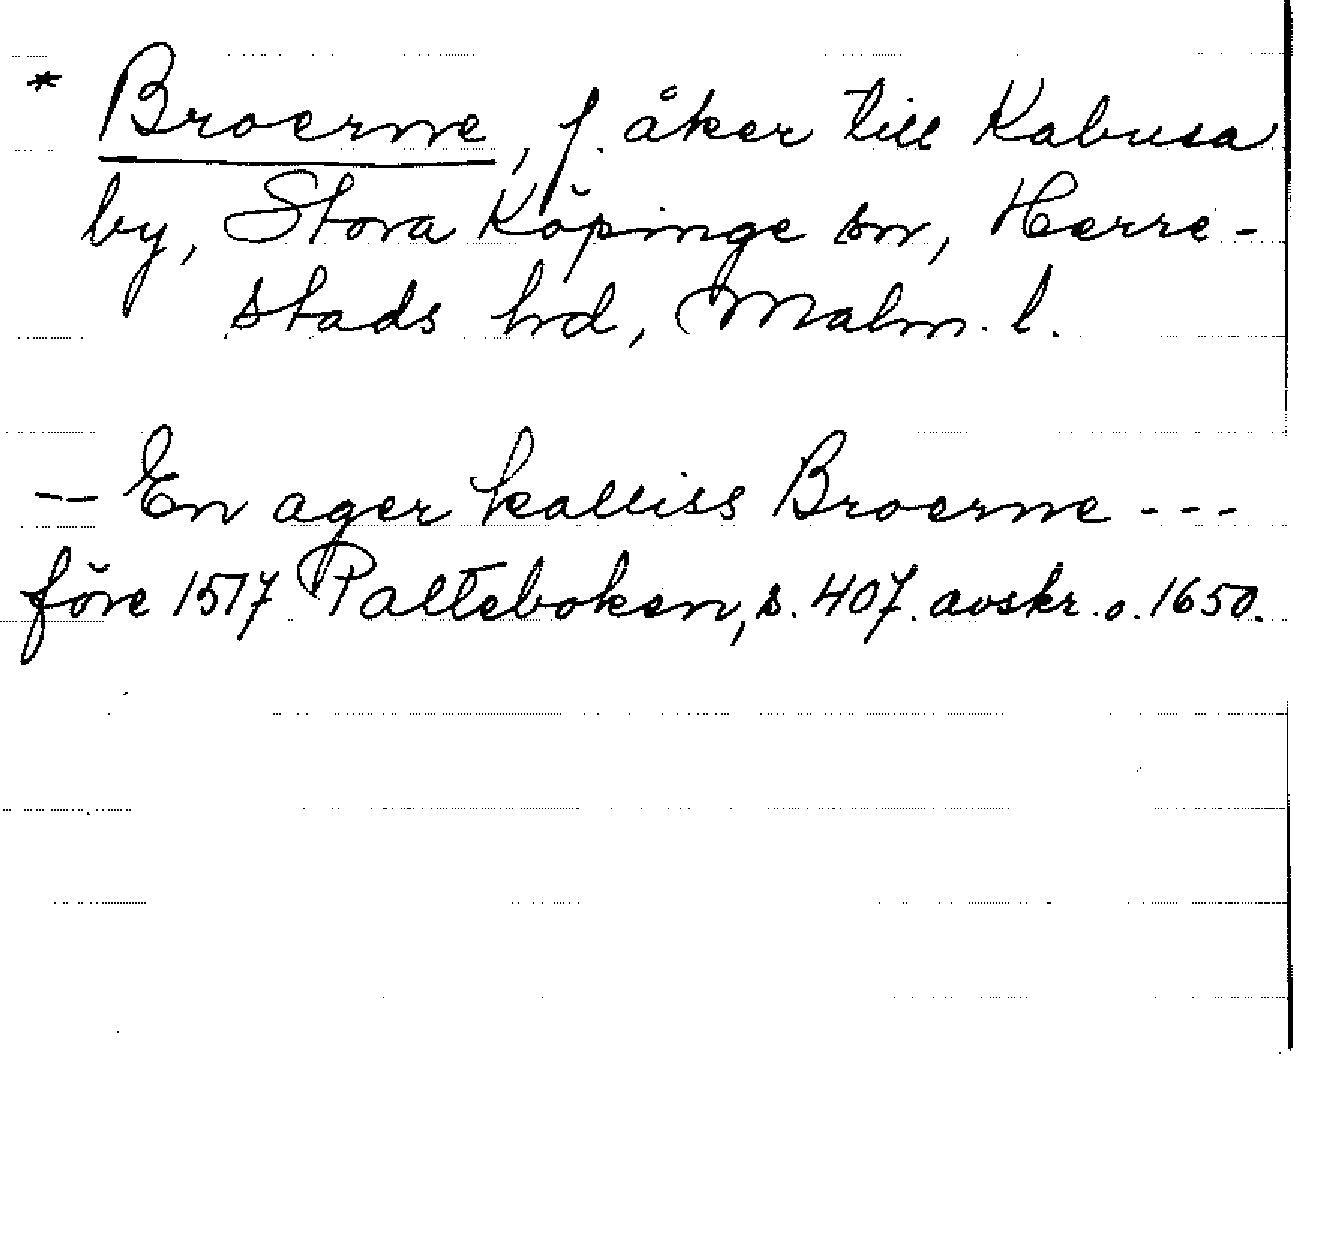 * Broerne, f. åker till Kabusa
by, Stora Köpinge sn, Herre-
stads hd, Malm. l.
-- En ager kalliss Broerne ---
före 1517 Palteboken, s. 407. avskr. o. 1650.